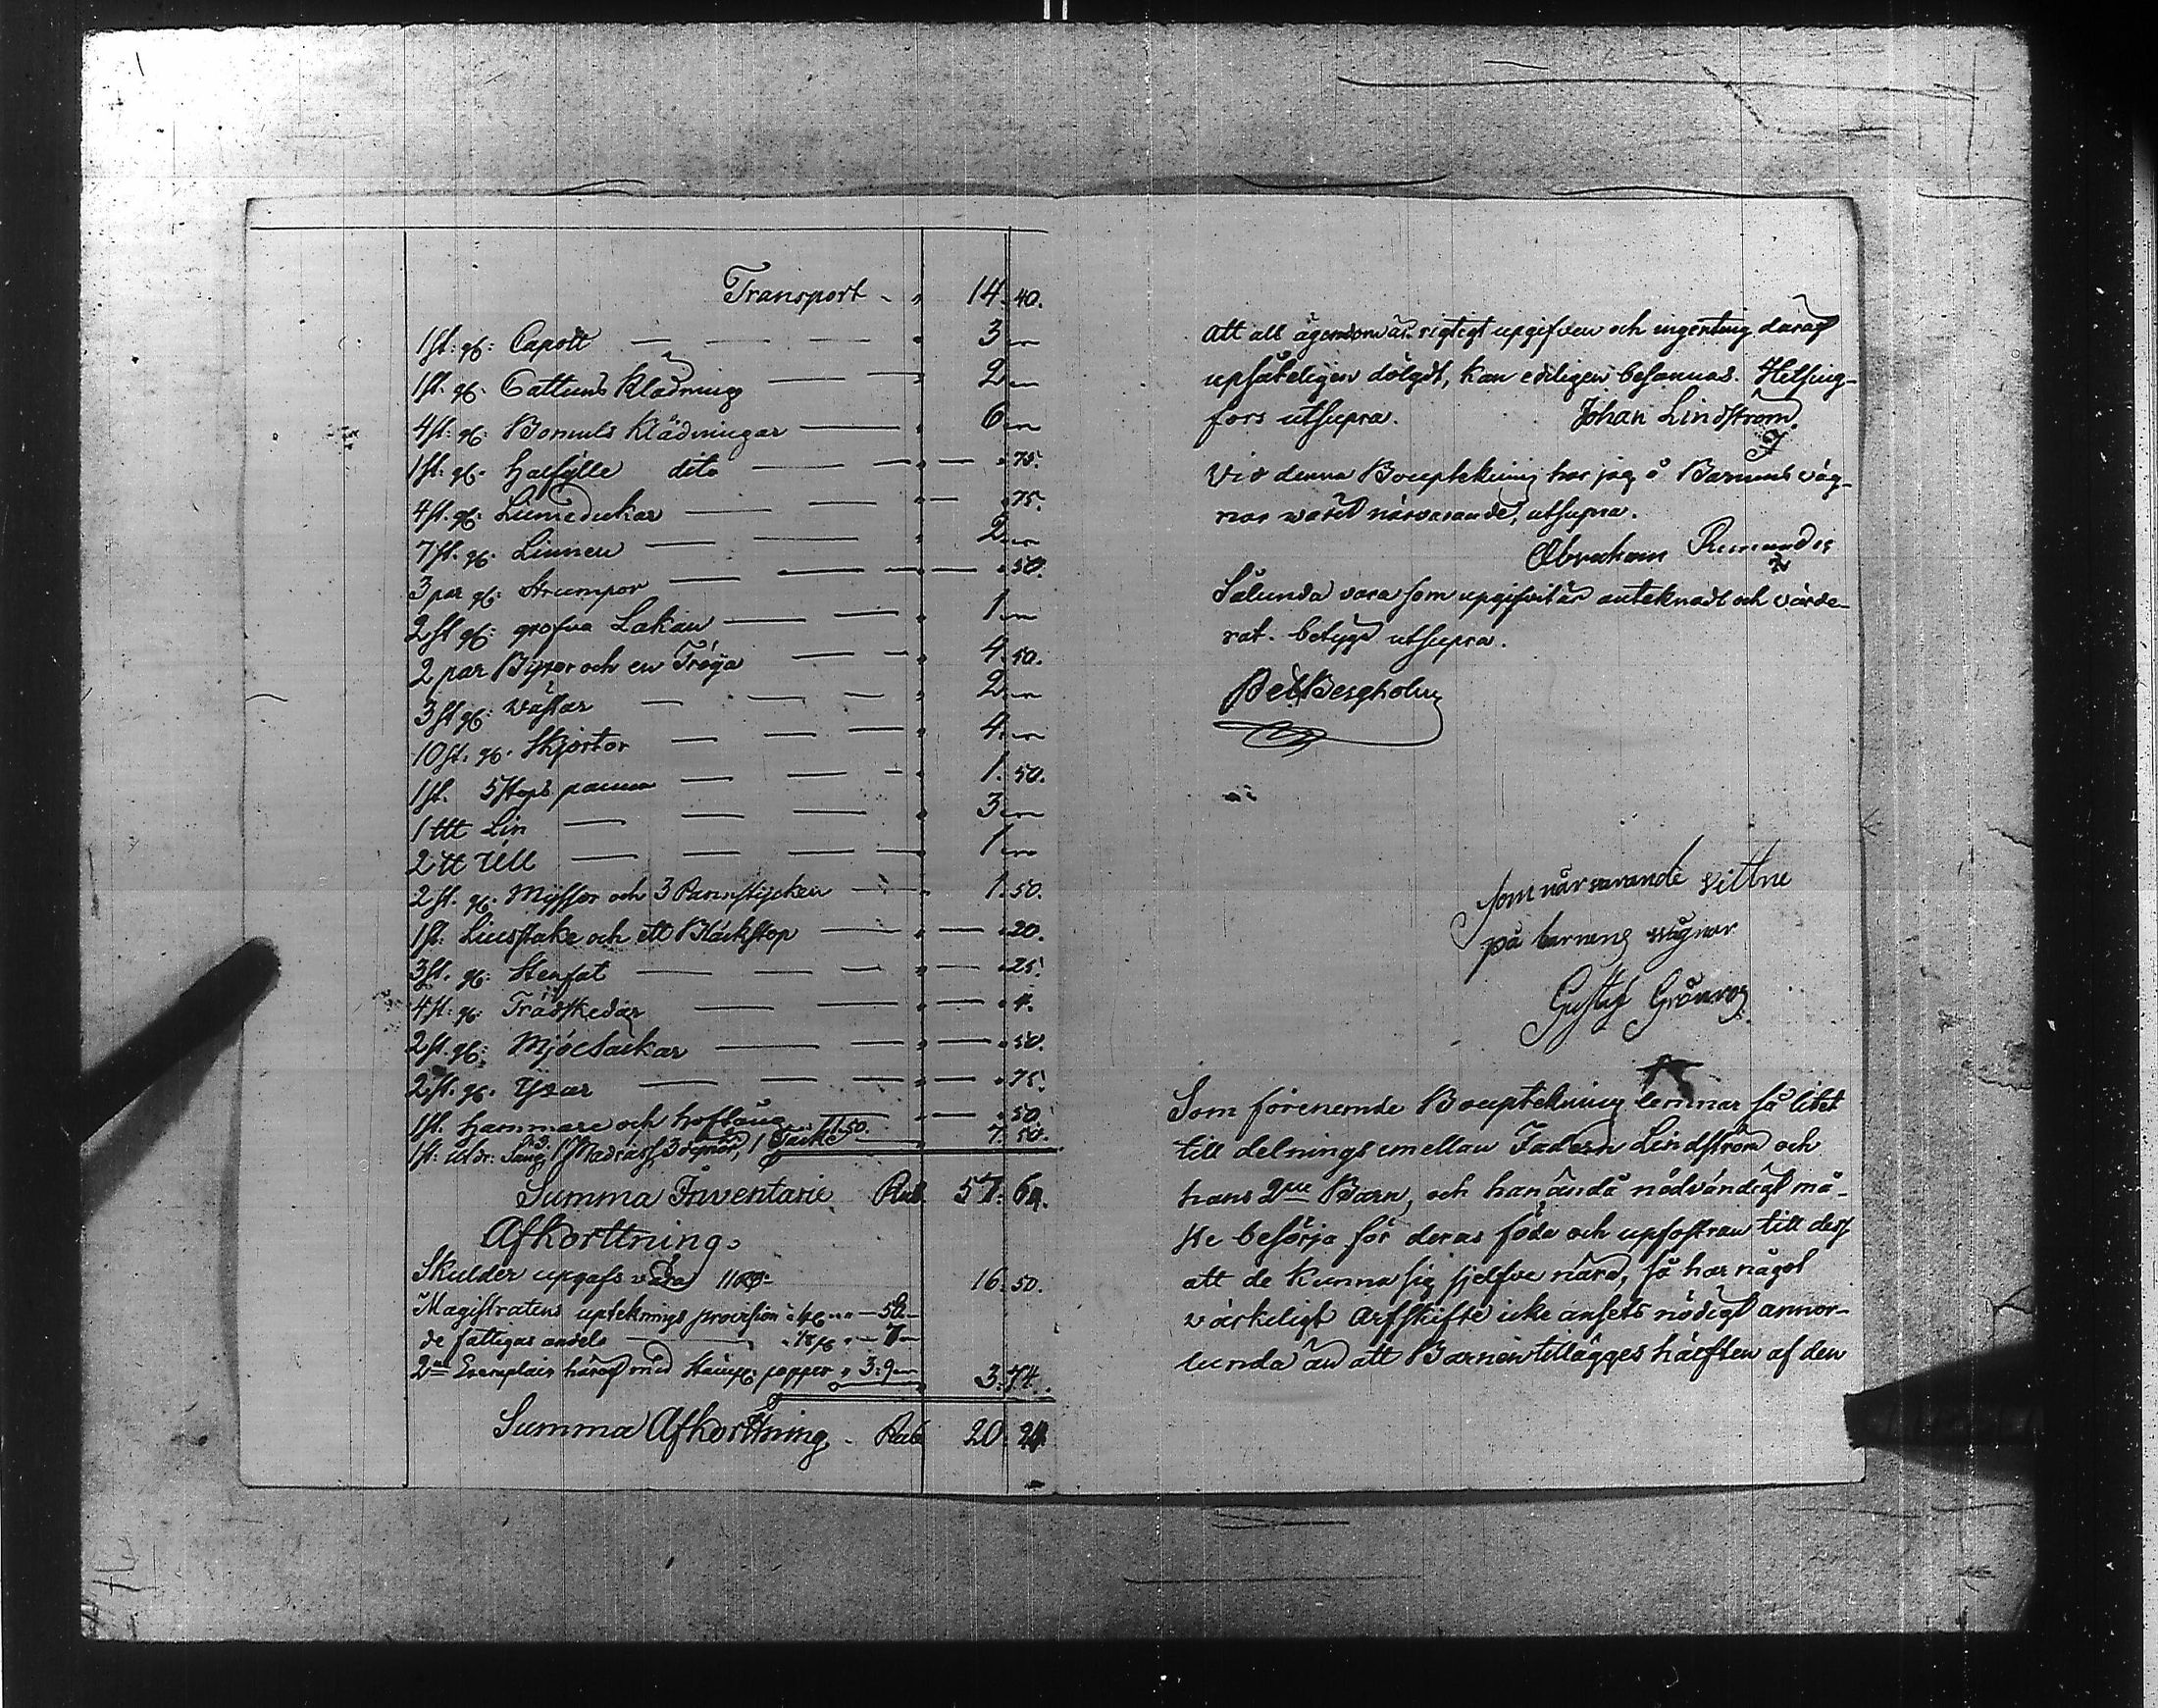 Transport - " 14. 40.
1 st: gl: Capott — — — — " 3 "—
1 st. gl. Cattuns Klädning — — " 2 "—
4 st: gl: Bomuls Klädningar — " 6 "—
1 st: gl. halfylle dito — — — " — " 75.
4 st. gl: Linnedukar — — — " — " 75.
7 st. gl: Linnen — — — " 2 "—
3 par gl: Strumpor — — — " — " 50.
2 st gl: grofva Lakan — — — " 1 "—
2 par Byxor och en Tröya — — " 4. 50.
3 st gl: Västar — — — " 2 "—
10 st. gl. Skjortor — — — " 4 "—
1 st. 5 Stops panna — — — " 1. 50.
1 ltt Lin — — — " 3 "—
2 tt Ull — — — — " 1 "—
2 st. gl. Myssor och 3 Barnstycken — " 1. 50.
1 st: Liusstake och ett Bläckstop — — " — " 20.
3 st. gl: Stenfat — — — " — " 25.
4 st: gl: Trädskedar — — — " — " 4.
2 st. gl: Mjölsäckar — — — " — " 50.
2 st. gl. Yxar — — — — " — " 75.
1 st. Hammare och hoftång — " — " 50.
1 st: Säng, 1 Madrass, 3 dynor, 1 Täcke 1.50. — " 7. 50.
Summa Inventarie Rub 57. 64.
Afkorttning.
Skulder upgafs vara 16. 50.
Magistratens upteknings provision
de fattigas andel
2ne Exemplair häraf med Stämp. papper " 3: 9 " 3. 74.
Summa Afkorttning - Rub 20. 24.
Att all ägendom är rigtigt upgifven och ingenting däraf
upsåteligen dölgdt, kan edeligen besannas. Helsing-
fors utsupra. Johan Lindström
Vid denna Bouptekning har jag å Barnens väg-
nar warit närvarande, utsupra.
Abraham
Sålunda vara som upgifvit är anteknadt och värde-
rat. betyga utsupra.
Bergholm
Som närvarande Vittne
på barnens wägnar
Gustaf Grönroos
Som förenemde Bouptekning lemnar så litet
till delnings emellan Fadern Lindström och
hans 2ne Barn, och han ändå nödvändigt må-
ste besörja för deras föda och upfostran till dess
att de kunna sig sjelfve nära, så har något
värkeligt Arfskifte icke ansets nödigt annor-
lunda än att Barnen tillägges hälften af den